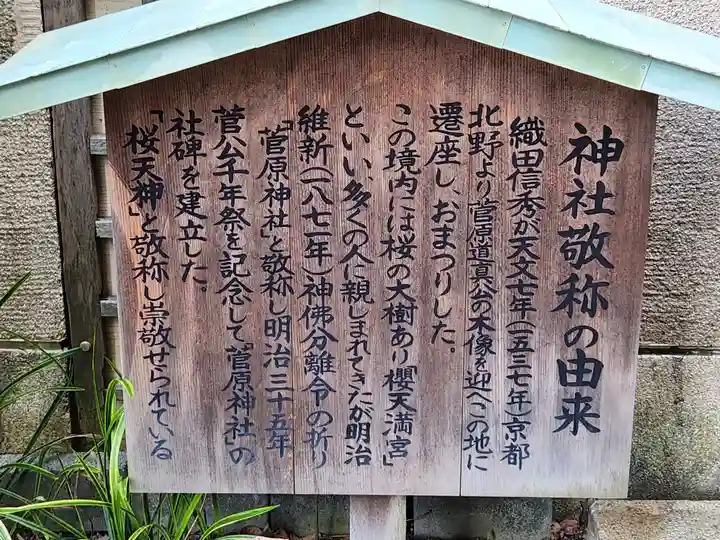 神社敬称の由来
織田信秀が天文七年(一五三七年)京都
北野より菅原道真公の木像を迎へこの地に
遷座し、おまつりした。
この境内には桜の大樹あり櫻天満宮」
といい、多くの人に親しまれてきたが明治
維新(一八七一年)神佛分離令の折り
「菅原神社」と敬称し明治三十五年
菅公千年祭を記念して「菅原神社」の
社碑を建立した。
「桜天神」と敬称し崇敬せられている